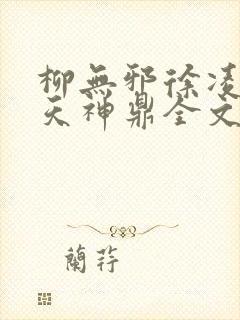 柳無邪徐凌
天神鼎全文
蘭荇